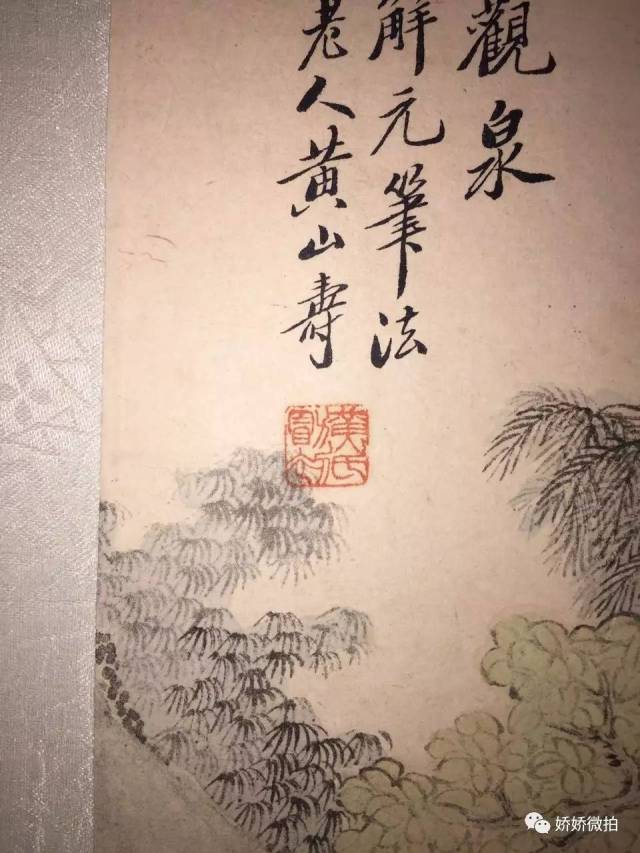 觀泉
解元筆法
老人黃山壽
娇娇微拍